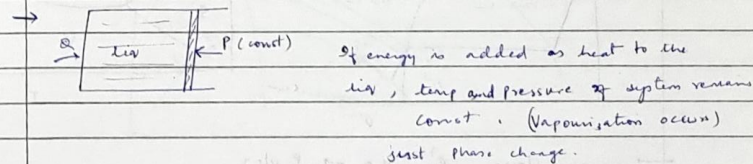 →
Q liq P (const) If energy is added as heat to the
liq, temp and pressure of system remains
const. (Vapourisation occurs)
just phase change.